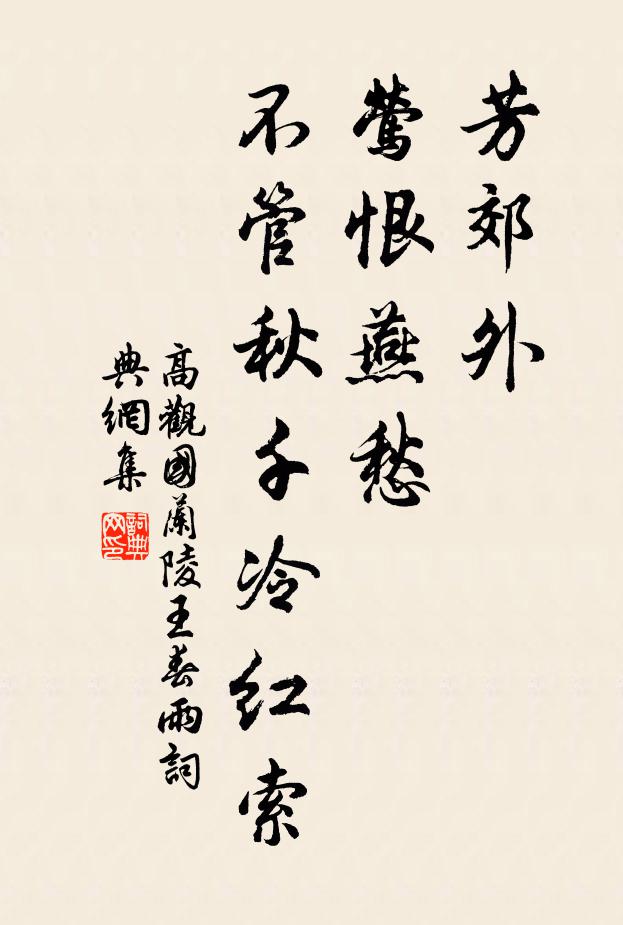 芳郊外
莺恨燕愁
不管秋千冷红索
高觀國蘭陵王春雨詞
典網集
詞典
网印